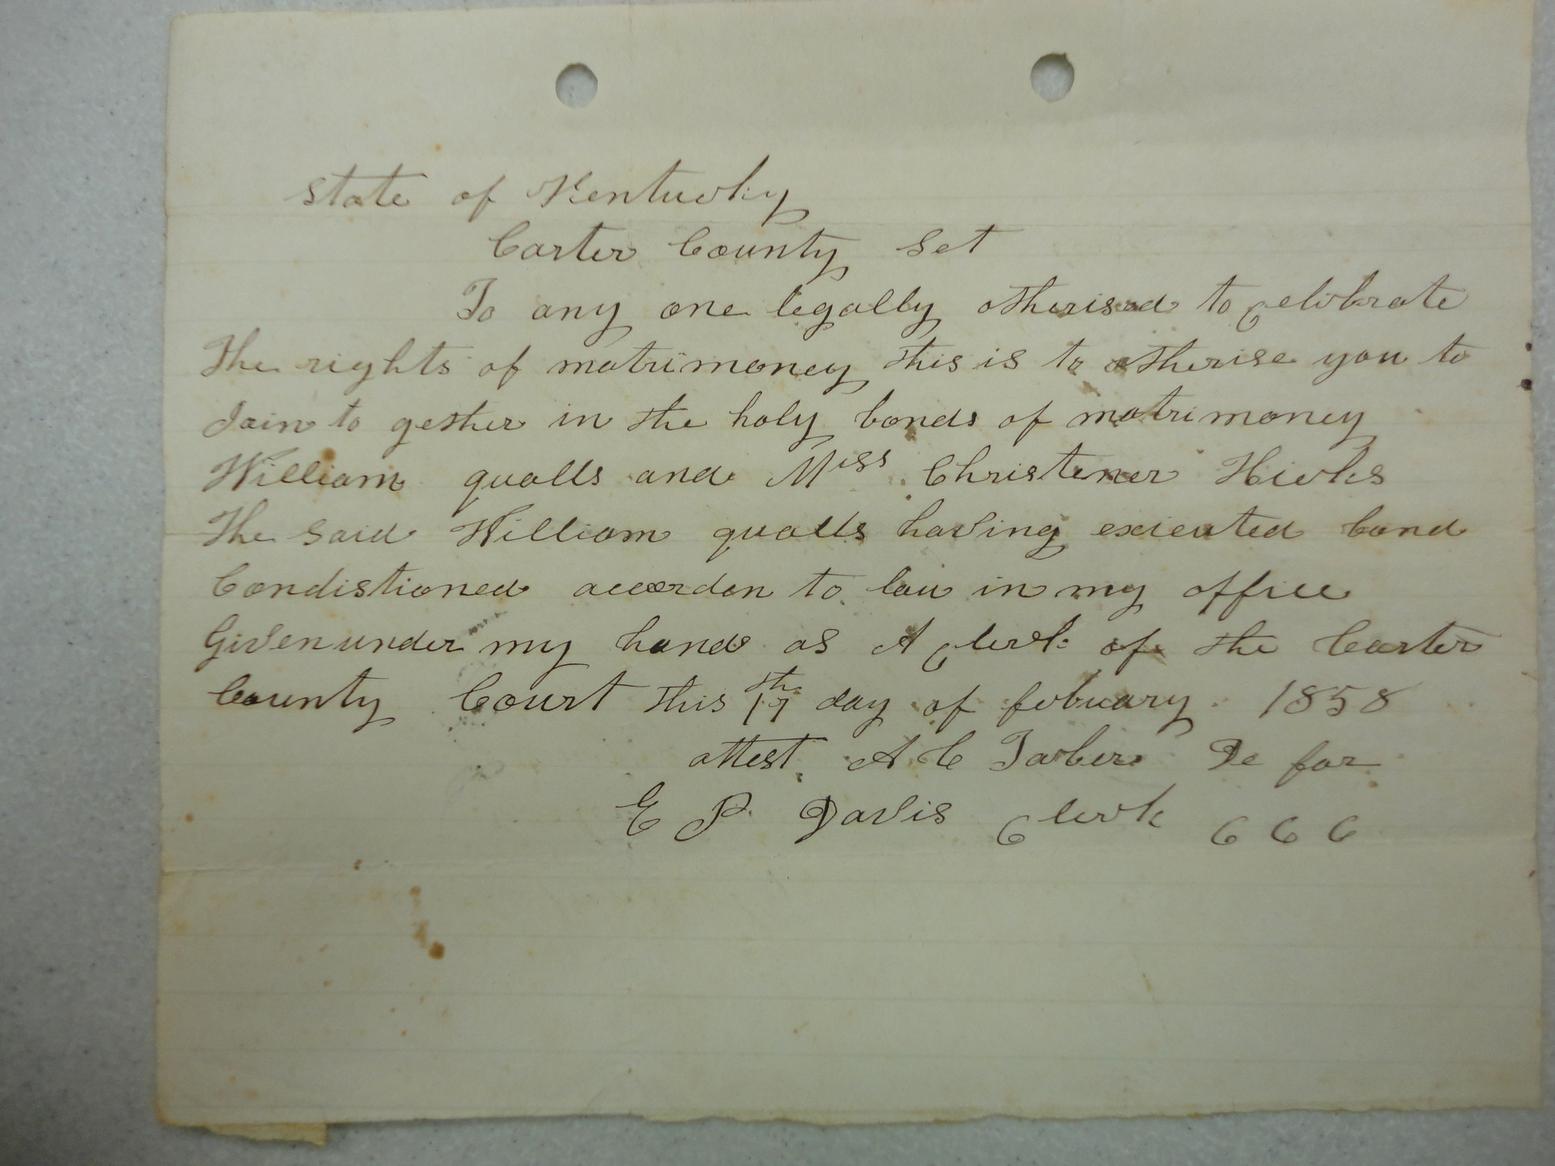 State of Kentucky
Carter County Set
To any one legally otherised to celebrate
The rights of matrimoney this is to otherise you to
Join to gether in the holy bonds of matrimoney
William qualls and Miss Christener Hicks
The said William qualls having exicuted bond
Condistioned accordon to law in my office
Given under my hand as A clerk of the Carter
County Court this 17th day of febuary 1858
attest A C De for
E P Davis Clerk C C C